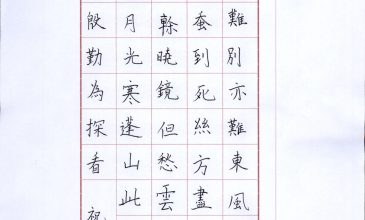 難別亦難東風
蚕到死絲方盡
榦曉鏡但愁雲
月光寒蓬山此
殷勤為探看